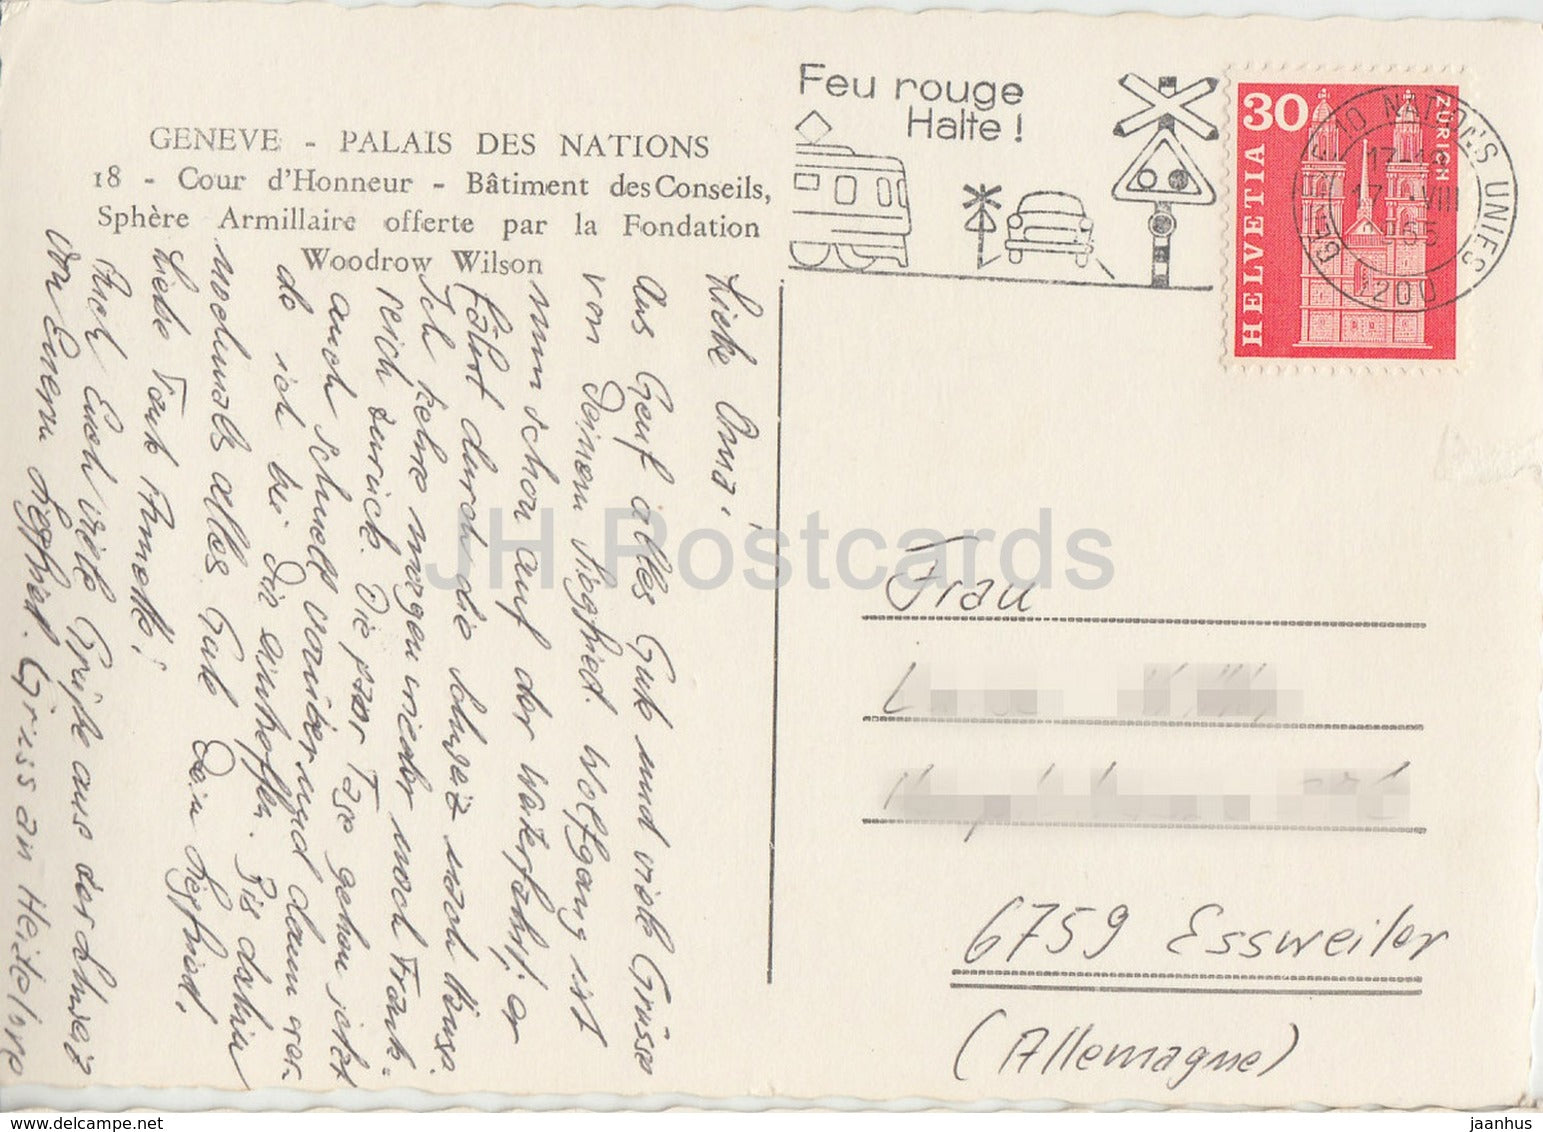 GENEVE - PALAIS DES NATIONS
18 - Cour d'Honneur - Bâtiment des Conseils,
Sphère Armillaire offerte par la Fondation
Woodrow Wilson
Feu rouge
Halte!
30
ZÜRICH
HELVETIA
10 NATIONS UNIES
17-18
17.-VIII
65
1200
Liebe Oma!
Aus Genf alles Gute und viele Grüsse
von Deinem Siegfried. Wolfgang ist
nun schon auf der Weiterfahrt, er
fährt durch die Schweiz nach Hause
Ich kehre morgen wieder nach Frank-
reich zurück. Die paar Tage gehen jetzt
auch schnell vorüber und dann
de ich bei Dir eintreffen. Bis dahin
nochmals alles Gute Dein Siegfried.
Liebe Tante Annette!
Auch Euch viele Grüße aus der Schweiz
von Eurem Siegfried. Gruss an Heidelore
Frau
6759 Essweiler
(Allemagne)
JH Postcards
delcampe.net
jaanhus